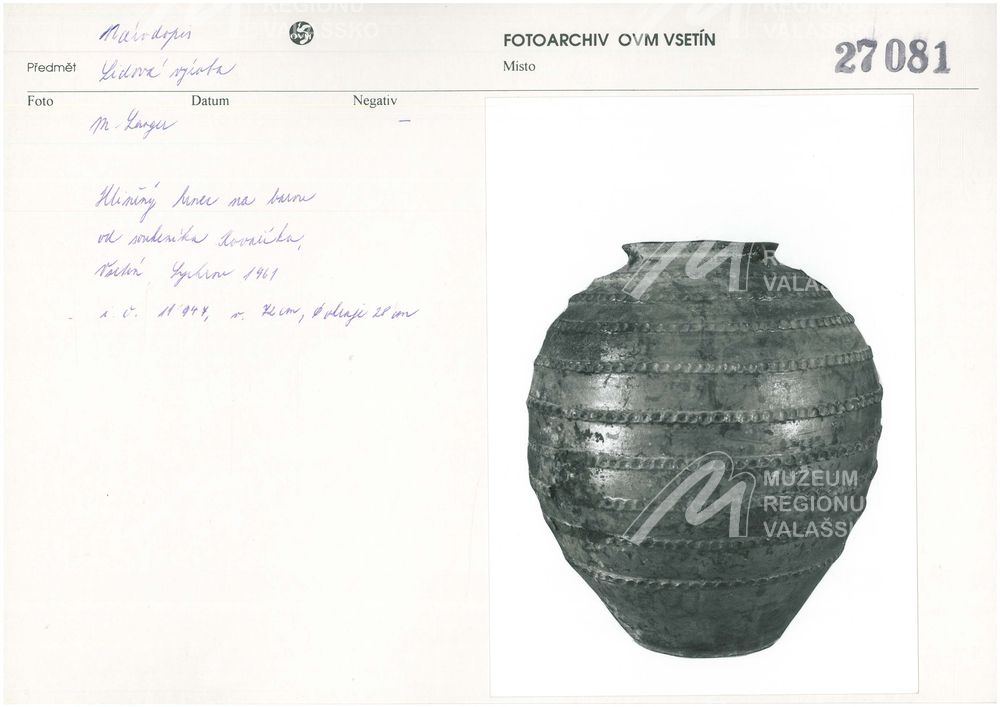 Národopis
FOTOARCHIV OVM VSETÍN
27081
Předmět Lidová výroba
Místo
Foto Datum Negativ
M. Langer –
Hliněný hrnec na barvu
od soukeníka Kovaříka,
Vsetín Sychrov 1961
i. č. 11 947, v. 72 cm, Ø okraje 28 cm
MUZEUM
REGIONU
VALAŠSKO